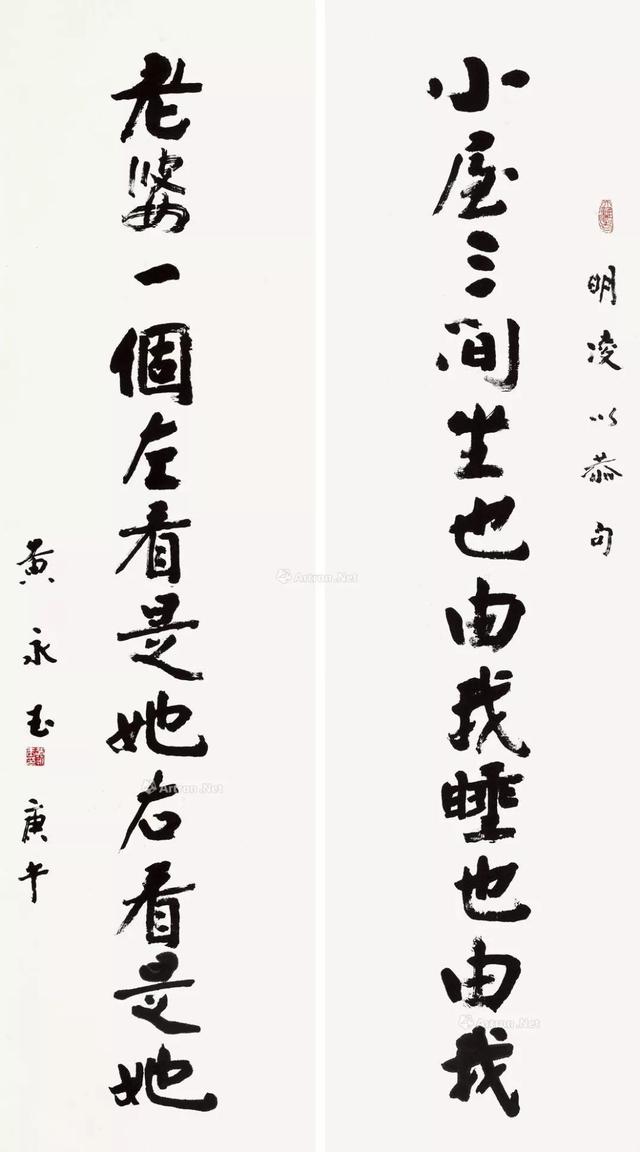 明凌以恭句
小屋三间坐也由我睡也由我
老婆一個左看是她右看是她
黄永玉
庚午
Artron.Net
Artron.Net
Artron.Net